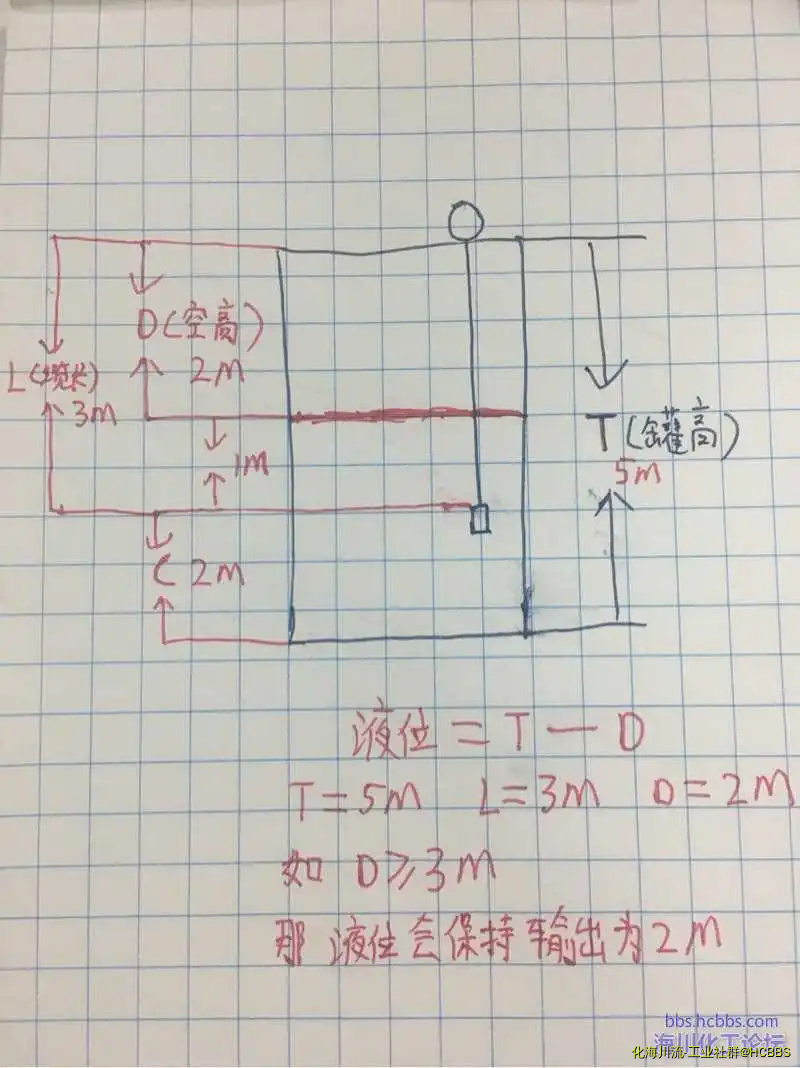 D(空高)
2M
L(缆长)
3M
1M
T(罐高)
5M
C 2M
液位 = T — D
T=5M L=3M D=2M
如 D≥3M
那 液位会保持输出为2M
bbs.hcbbs.com
海川化工论坛
化海川流·工业社群@HCBBS